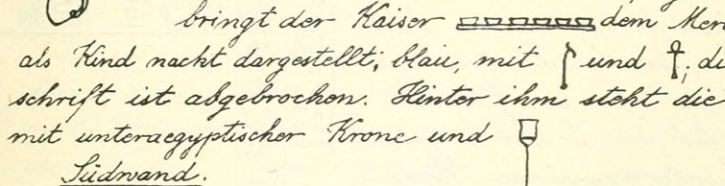 bringt der Kaiser dem
als Kind nackt dargestellt; blau, mit und
schrift ist abgebrochen. Hinter ihm steht die
mit unteraegyptischer Krone und
Südwand.